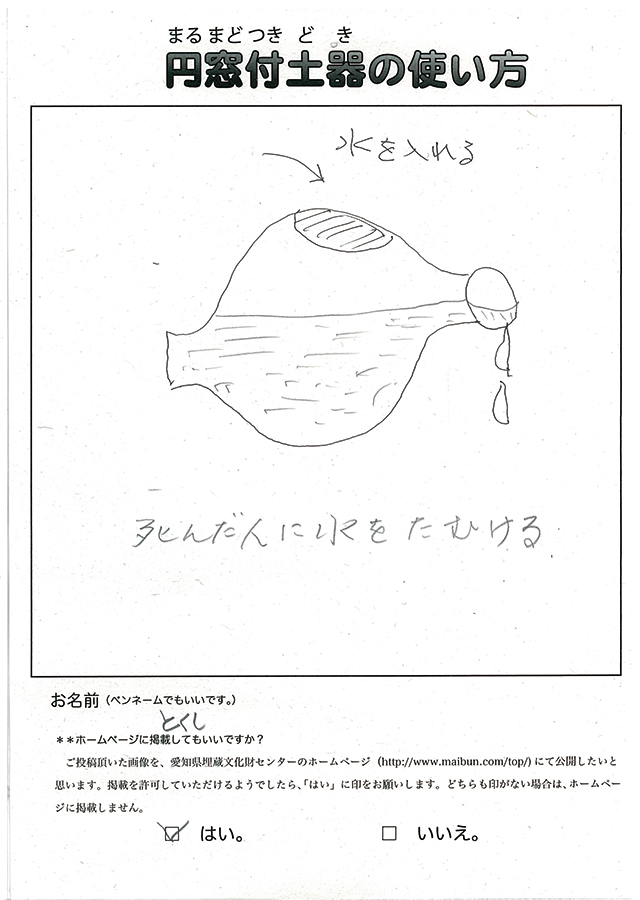 まるまどつきどき
円窓付土器の使い方
水を入れる
死んだ人に水をたむける
お名前(ペンネームでもいいです。)
とくし
**ホームページに掲載してもいいですか?
ご投稿頂いた画像を、愛知県埋蔵文化財センターのホームページ(http://www.maibun.com/top/)にて公開したいと
思います。掲載を許可していただけるようでしたら、「はい」に印をお願いします。どちらも印がない場合は、ホームペー
ジに掲載しません。
はい。 いいえ。